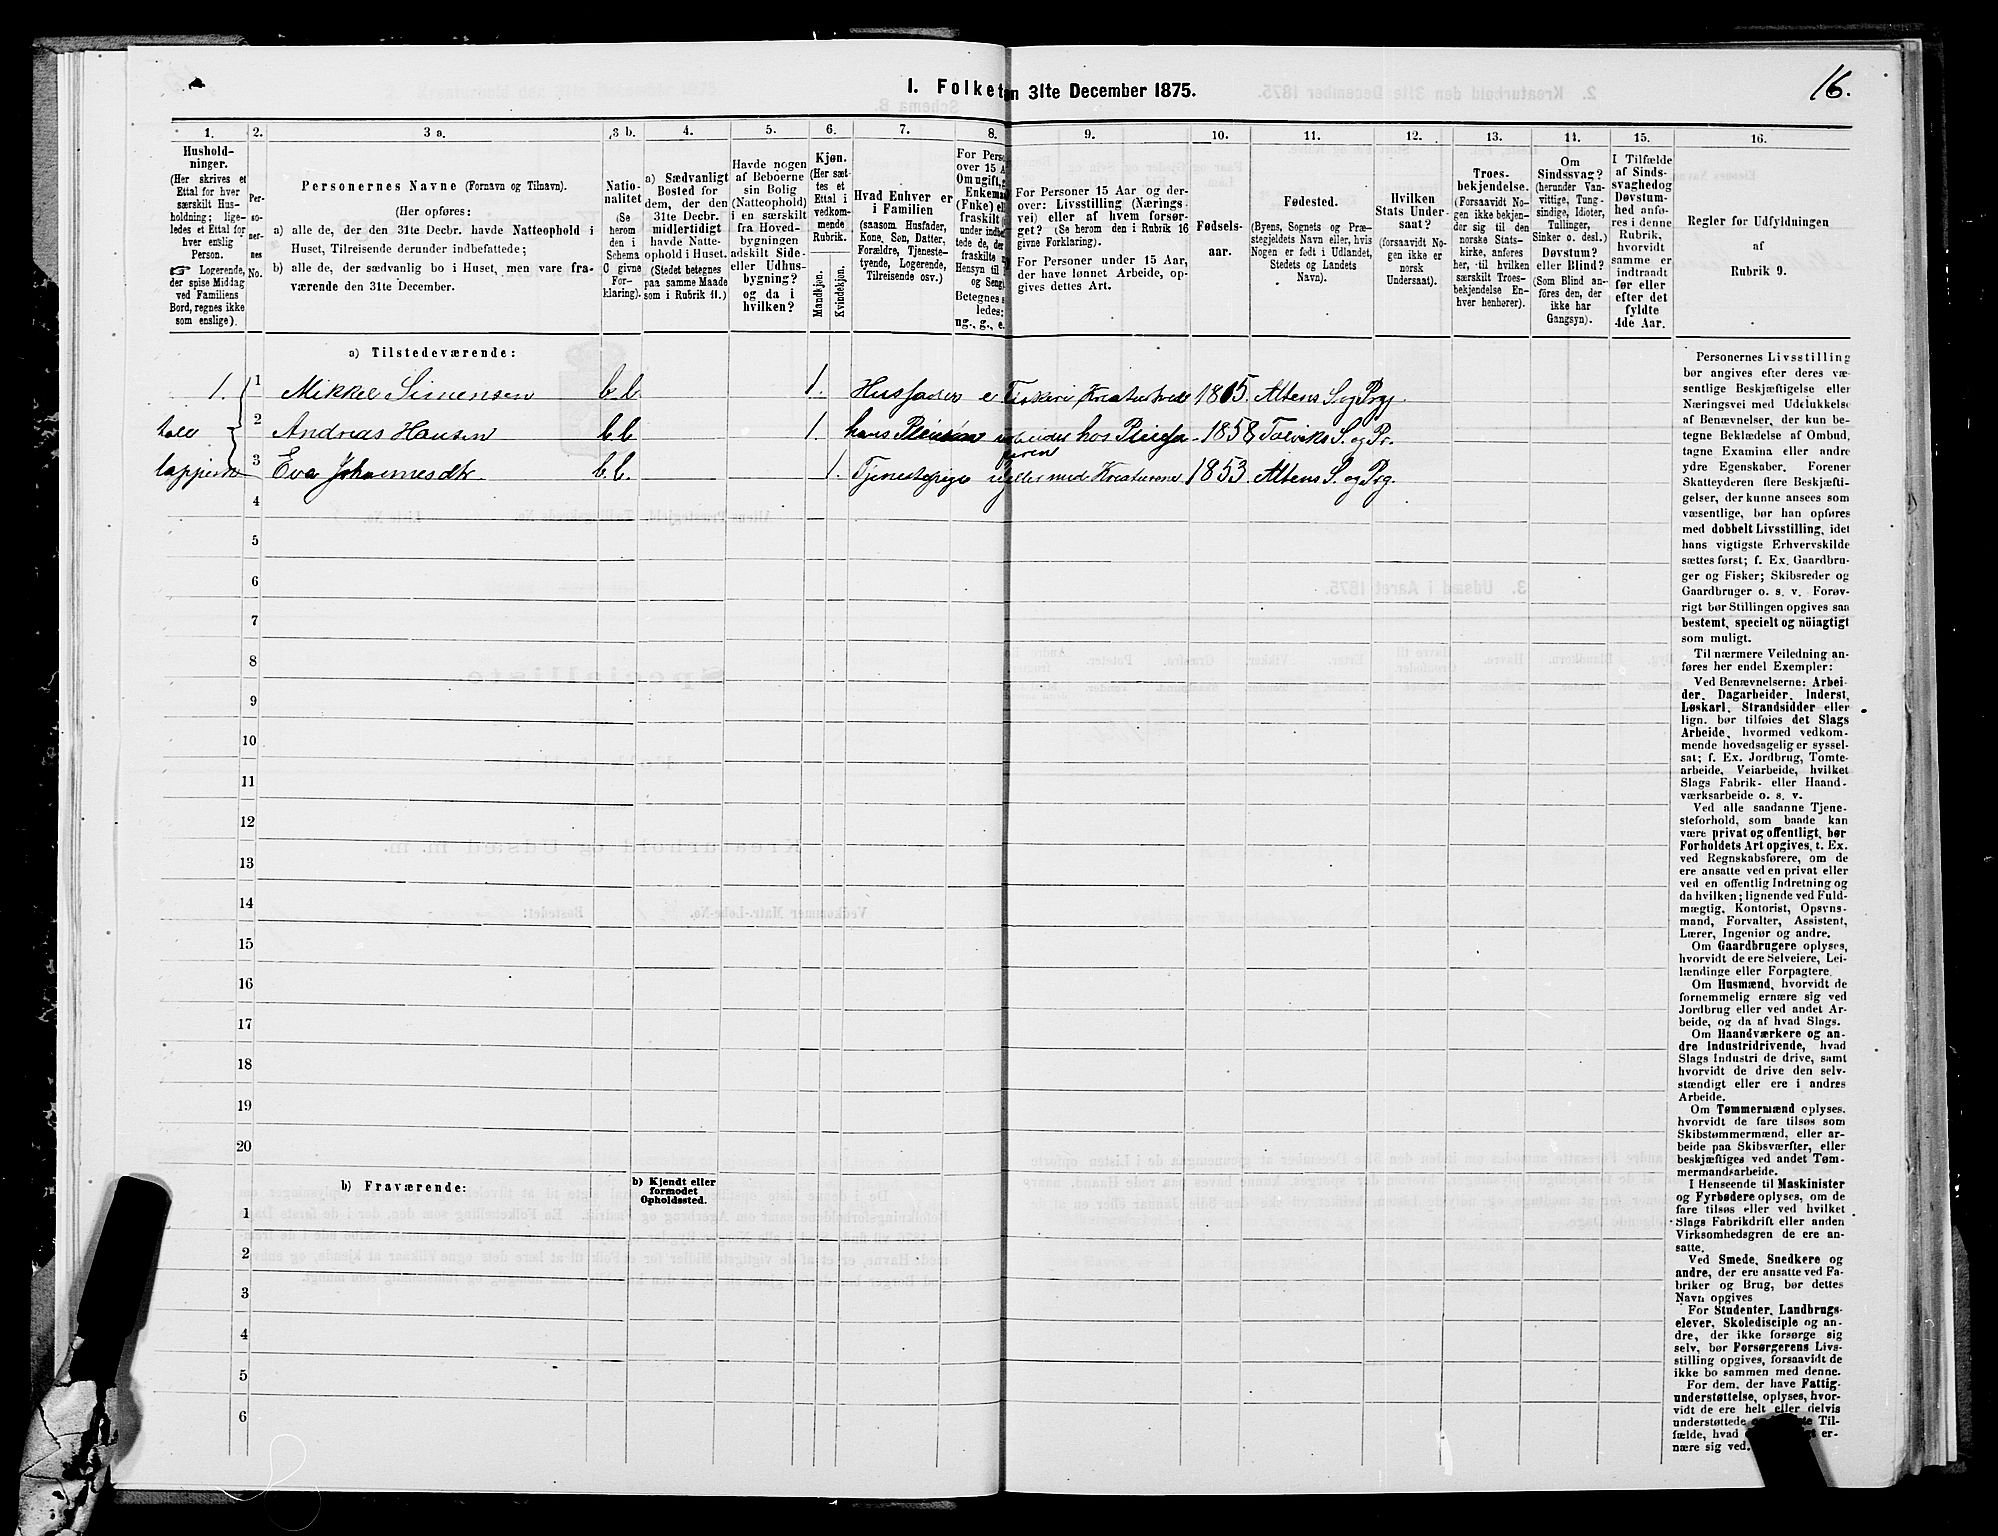 16.
1. Folket n 31te December 1875.
1. 2. 3 a. 3 b. 4. 5. 6. 7. 8. 9. 10. 11. 12. 13. 14. 15. 16.
Hushold-
ninger.
(Her skrives et
Ettal for hver
særskilt Hus-
holdning; lige-
ledes et Ettal for
hver enslig
Person.
Logerende,
der spise Middag
ved Familiens
Bord, regnes ikke
som enslige).
Per-
so-
ner-
nes
No.
Personernes Navne (Fornavn og Tilnavn).
(Her opføres:
a) alle de, der den 31te Decbr. havde Natteophold i
Huset, Tilreisende derunder indbefattede;
b) alle de, der sædvanlig bo i Huset, men vare fra-
værende den 31te December.
Natio-
nalitet
(Se
herom
den i
Schema
C givne
For-
klaring).
a) Sædvanligt
Bosted for
dem, der den
31te Decbr.
midlertidigt
havde Natte-
ophold i Huset.
(Stedet betegnes
paa samme Maade
som i Rubrik 11.)
Havde nogen
af Beboerne
sin Bolig
(Natteophold)
i en særskilt
fra Hoved-
bygningen
adskilt Side-
eller Udhus-
bygning?
og da i
hvilken?
Kjøn.
(Her sæt-
tes et
Ettal i
vedkom-
mende
Rubrik.
Mandkjøn.
Kvindekjøn.
Hvad Enhver er
i Familien
(saasom Husfader,
Kone, Søn, Datter,
Forældre, Tjeneste-
tyende, Logerende,
Tilreisende osv.)
For Perso
over 15 A
Om ugift, g
Enkema
(Enke) el
fraskilt
under indbe
tede de, de
fraskilte
Hensyn til
og Seng
Betegnes s
ledes:
ug., g., e.
For Personer 15 Aar og der-
over: Livsstilling (Nærings-
vei) eller af hvem forsør-
get? (Se herom den i Rubrik 16
givne Forklaring).
For Personer under 15 Aar,
der have lønnet Arbeide, op-
gives dettes Art.
Fødsels-
aar.
Fødested.
(Byens, Sognets og Præ-
stegjeldets Navn eller, hvis
Nogen er født i Udlandet,
Stedets og Landets
Navn).
Hvilken
Stats Under-
saat?
(forsaavidt No-
gen ikke er
norsk
Undersaat).
Troes-
bekjendelse.
(Forsaavidt No-
gen ikke bekjen-
der sig til den
norske Stats-
kirke, anføres
her, til hvilken
særskilt Troes-
bekjendelse En-
hver henhører).
Om
Sindssvag?
(herunder Van-
vittige, Tung-
sindige, Idioter,
Tullinger,
Sinker o. desl.)
Døvstum?
eller Blind?
(Som Blind an-
føres den, der
ikke har
Gangsyn).
I Tilfælde
af Sinds-
svaghed og
Døvstum-
hed anfø-
res i denne
Rubrik,
hvorvidt
samme er
indtraadt
før eller
efter det
fyldte
4de Aar.
Regler for Udfyldningen
af
Rubrik 9.
a) Tilstedeværende:
1. 1 Mikkel Simensen b.b 1. Husfader e Fiskeri Kreaturhold 1815. Altens S og Prgj.
2 Andreas Hansen b.b 1. hans 1858 Talviks S. og Pr.
3 Eva Johannesdtr. b.b. 1. Tjenestepige u steller med Kreaturene 1853. Altens S. og Prg.
4
5
6
7
8
9
10
11
12
13
14
15
16
17
18
19
20
b) Fraværende:
b) Kjendt eller
formodet
Opholdssted.
1
2
3
4
5
6
Personernes Livsstilling
bør angives efter deres væ-
sentlige Beskjæftigelse eller
Næringsvei med Udelukkelse
af Benævnelser, der kun be-
tegne Beklædelse af Ombud,
tagne Examina eller andre
ydre Egenskaber. Forener
Skatteyderen flere Beskjæfti-
gelser, der kunne ansees som
væsentlige, bør han opføres
med dobbelt Livsstilling, idet
hans vigtigste Erhvervskilde
sættes først; f. Ex. Gaardbru-
ger og Fisker; Skibsreder og
Gaardbruger o. s. v. Forøv-
rigt bør Stillingen opgives saa
bestemt, specielt og nøiagtigt
som muligt.
Til nærmere Veiledning an-
føres her endel Exempler:
Ved Benævnelserne: Arbei-
der, Dagarbeider, Inderst,
Løskarl, Strandsidder eller
lign. bør tilføies det Slags
Arbeide, hvormed vedkom-
mende hovedsagelig er syssel-
sat; f. Ex. Jordbrug, Tomte-
arbeide, Veiarbeide, hvilket
Slags Fabrik- eller Haand-
værksarbeide o. s. v.
Ved alle saadanne Tjene-
steforhold, som baade kan
være privat og offentligt, bør
Forholdets Art opgives, t. Ex.
ved Regnskabsførere, om de
ere ansatte ved en privat eller
ved en offentlig Indretning og
da hvilken; lignende ved Fuld-
mægtig, Kontorist, Opsyns-
mand, Forvalter, Assistent,
Lærer, Ingeniør og andre.
Om Gaardbrugere oplyses,
hvorvidt de ere Selveiere, Lei-
lændinge eller Forpagtere.
Om Husmænd, hvorvidt de
fornemmelig ernære sig ved
Jordbrug eller ved andet Ar-
beide, og da af hvad Slags.
Om Haandværkere og an-
dre Industridrivende, hvad
Slags Industri de drive, samt
hvorvidt de drive den selv-
stændigt eller ere i andres
Arbeide.
Om Tømmermænd oplyses,
hvorvidt de fare tilsøs som
Skibstømmermænd, eller ar-
beide paa Skibsværfter, eller
beskjæftiges ved andet Tøm-
mermandsarbeide.
I Henseende til Maskinister
og Fyrbødere oplyses, om de
fare tilsøs eller ved hvilket
Slags Fabrikdrift eller anden
Virksomhedsgren de ere an-
satte.
Ved Smede, Snedkere og
andre, der ere ansatte ved Fa-
briker og Brug, bør dettes
Navn opgives
For Studenter, Landbrugs-
elever, Skoledisciple og an-
dre, der ikke forsørge sig
selv, bør Forsørgerens Livs-
stilling opgives, forsaavidt de
ikke bo sammen med denne.
For dem, der have Fattig-
understøttelse, oplyses, hvor-
vidt de ere helt eller delvis
understøttede Til-
fælde, hvad er-
nære sig ved.